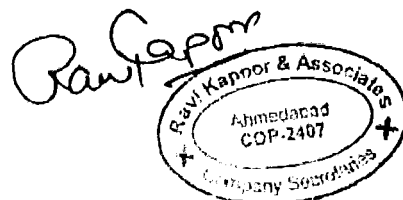 Ravi Kapoor
Ravi Kapoor & Associates
Ahmedabad
COP-2407
Company Secretaries